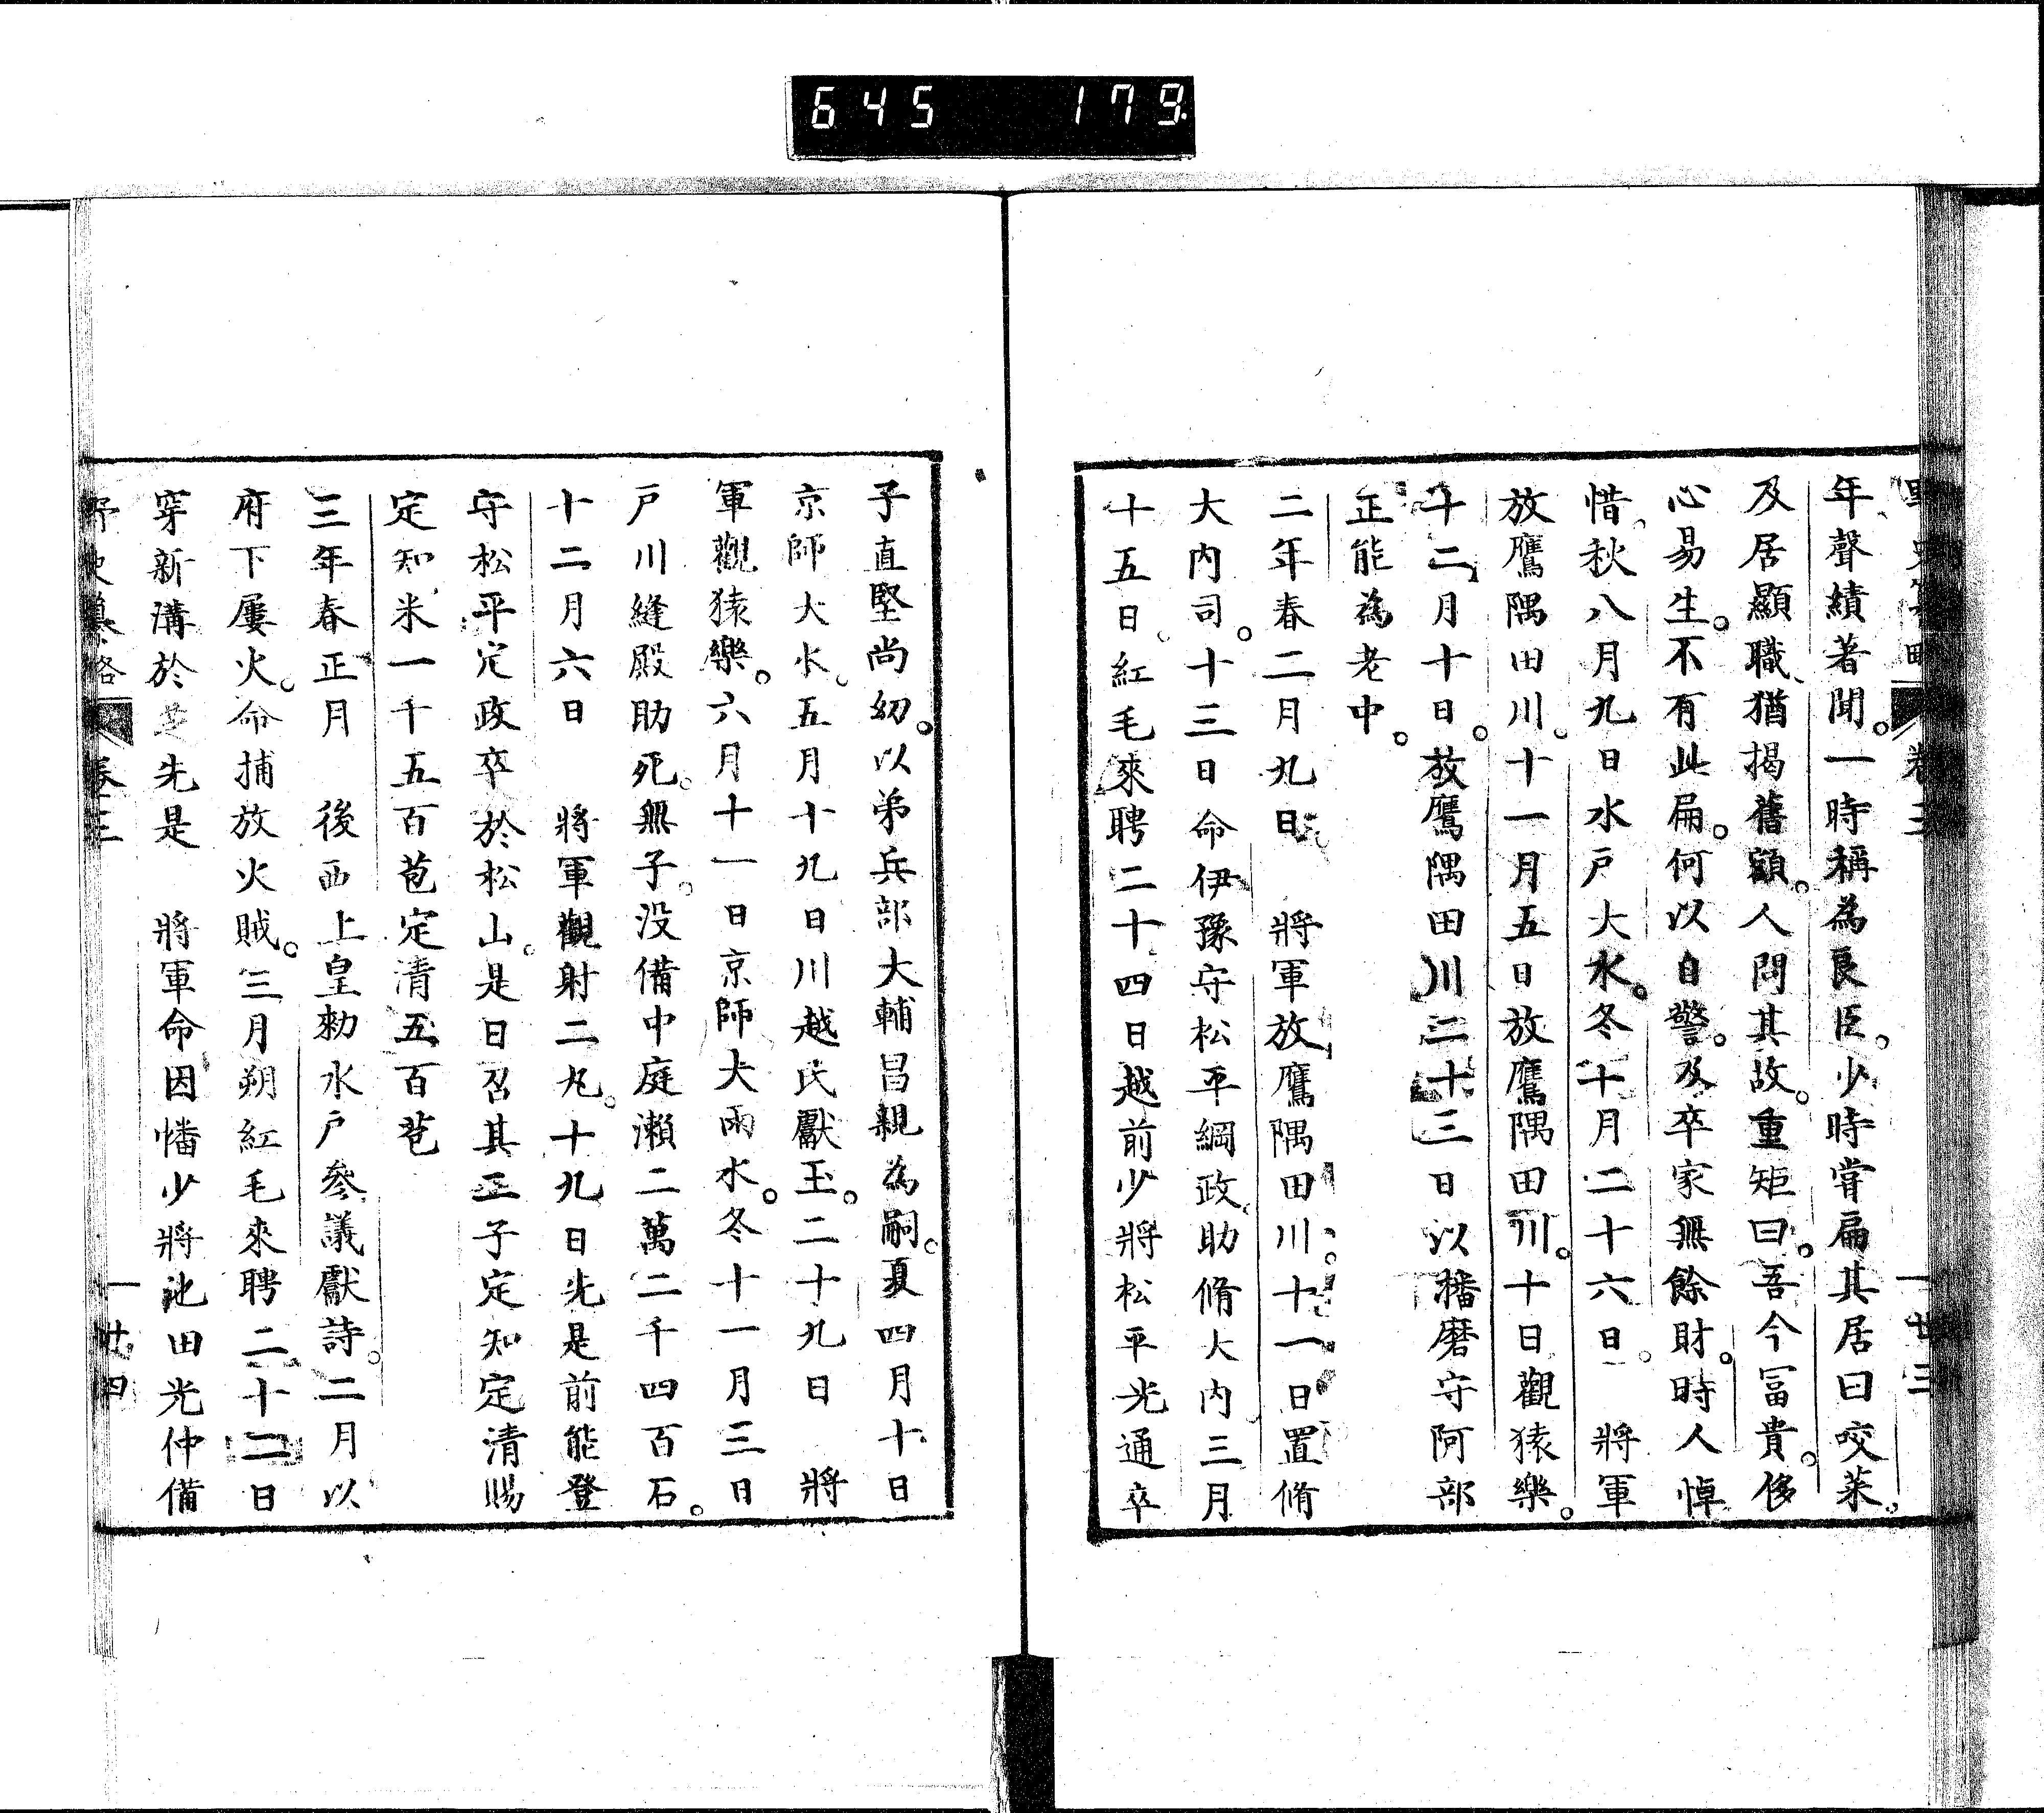 645 179
野史纂略 卷三 一 廿三
年聲績著聞。一時稱為良臣。少時嘗扁其居曰咬菜。
及居顯職、猶揭舊額。人問其故。重矩曰。吾今冨貴。侈
心易生。不有此扁。何以自警。及卒家無餘財。時人悼
惜。秋八月九日水戸大水。冬十月二十六日。 將軍
放鷹隅田川。十一月五日放鷹隅田川。十日觀猿樂。
十二月十日。放鷹隅田川二十三日以播磨守阿部
正能為老中。
二年春二月九日 將軍放鷹隅田川。十一日置脩
大内司。十三日命伊豫守松平綱政、助脩大内三月
十五日。紅毛來聘二十四日越前少將松平光通卒
子直堅尚幼。以弟兵部大輔昌親為嗣。夏四月十日
京師大水。五月十九日川越氏獻玉。二十九日 將
軍觀猿樂。六月十一日京師大雨水。冬十一月三日
戸川縫殿助死。無子。没備中庭瀬二萬二千四百石。
十二月六日 將軍觀射二丸。十九日先是前能登
守松平定政卒於松山。是日召其二子定知定清賜
定知、米一千五百苞定清五百苞
三年春正月 後西上皇勅水戸參議獻詩。二月以
府下屢火。命捕放火賊。三月朔紅毛來聘二十二日
穿新溝於芝先是 將軍命因幡少將池田光仲備
野史纂略 卷三 一 廿四